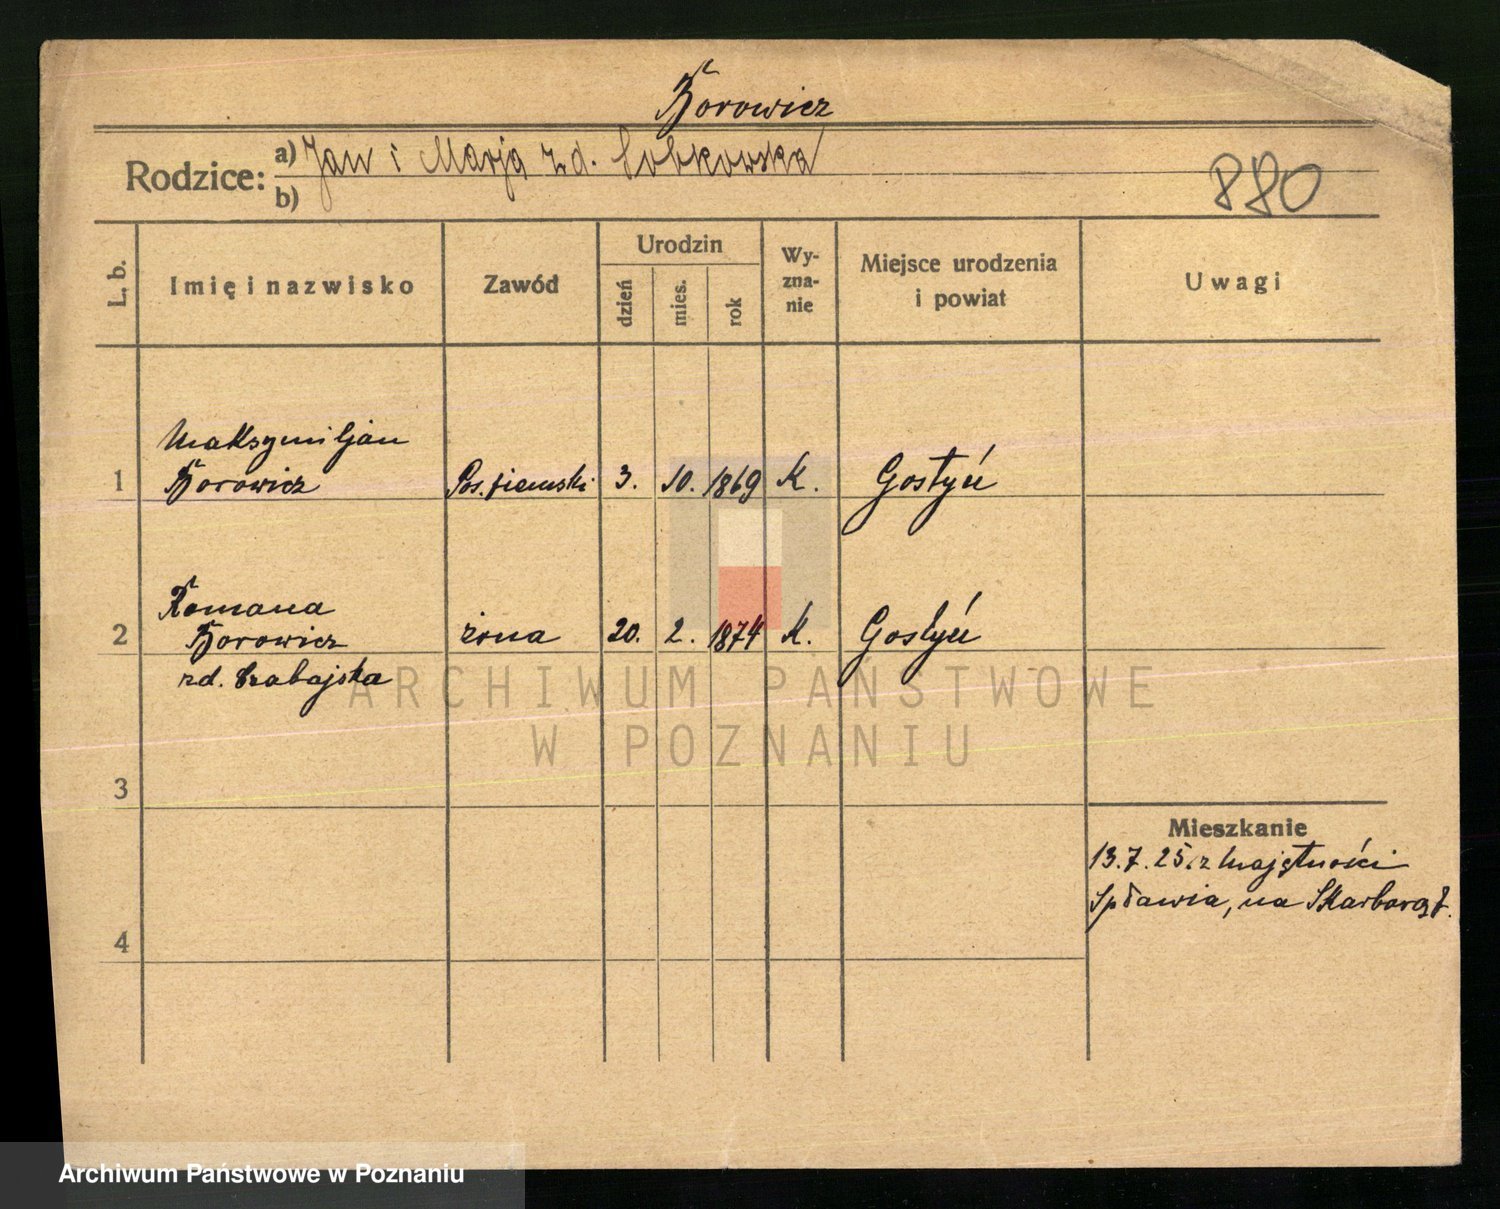 Borowicz
Rodzice:
a) Jan i Marja zd. Sobkowska
b)
880
L. b.
Imię i nazwisko
Zawód
Urodzin
dzień
mies.
rok
Wy-
zna-
nie
Miejsce urodzenia
i powiat
Uwagi
Maksymiljan
1 Borowicz Pos. ziemski 3. 10. 1869 K. Gostyń
Romana
2 Borowicz żona 20. 2. 1874 K. Gostyń
zd. Czabajska
ARCHIWUM PAŃSTWOWE
W POZNANIU
3
Mieszkanie
13.7.25. z majętności
Spławia, na Skarbową
4
Archiwum Państwowe w Poznaniu